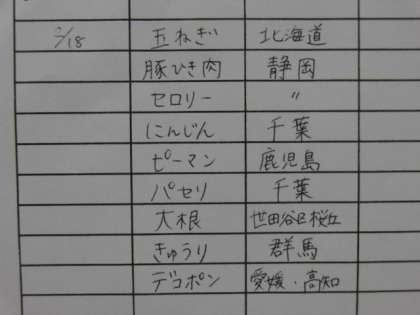 2/18 玉ねぎ 北海道
豚ひき肉 静岡
セロリー 〃
にんじん 千葉
ピーマン 鹿児島
パセリ 千葉
大根 世田谷区桜丘
きゅうり 群馬
デコポン 愛媛・高知